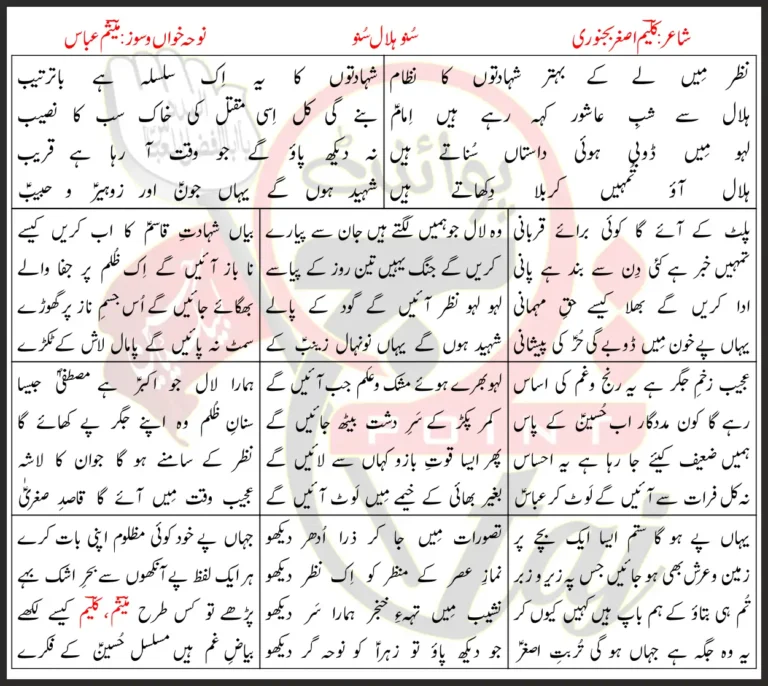 شاعر: کلیم اصغر بجنوری
سُنو ہلال سُنو
نوحہ خواں و سوز: میثم عباس
نظر مِیں لے کے بہتر شہادتوں کا نظام
ہلال سے شبِ عاشور کہہ رہے ہیں اِمامؑ
لہو مِیں ڈوبی ہوئی داستاں سُناتے ہیں
ہلال آؤ تمہیں کربلا دِکھاتے ہیں
شہادتوں کا یہ اِک سلسلہ ہے باترتیب
بنے گی کل اِسی مقتل کی خاک سب کا نصیب
نہ دیکھ پاؤ گے جو وقت آ رہا ہے قریب
شہید ہوں گے یہاں جونؑ اور زوہیرؑ و حبیبؑ
پلٹ کے آئے گا کوئی برائے قربانی
تمہیں خبر ہے کئی دِن سے بند ہے پانی
ادا کریں گے بھلا کیسے حقِ مہمانی
یہاں پے خون مِیں ڈوبے گی حُرؑ کی پیشانی
وہ لال جو ہمیں لگتے ہیں جان سے پیارے
کریں گے جنگ یہیں تین روز کے پیاسے
لہو لہو نظر آئیں گے گود کے پالے
شہید ہوں گے یہاں نونہال زینبؑ کے
بیاں شہادتِ قاسمؑ کا اب کریں کیسے
نا باز آئیں گے اِک ظُلم پر جفا والے
بھگائے جائیں گے اُس جسمِ ناز پر گھوڑے
سمٹ نہ پائیں گے پامال لاش کے ٹکڑے
عجیب زخمِ جگر ہے یہ رنج و غم کی اساس
رہے گا کون مددگار اب حُسینؑ کے پاس
ہمیں ضعیف کیئے جا رہا ہے یہ احساس
نہ کل فرات سے آئیں گے لَوٹ کر عباسؑ
لہو بھرے ہوئے مشک و علم جب آئیں گے
کمر پکڑ کے سَرِ دشت بیٹھ جائیں گے
پھر ایسا قوتِ بازو کہاں سے لائیں گے
بغیر بھائی کے خیمے مِیں لَوٹ آئیں گے
ہمارا لال جو اکبرؑ ہے مصطفیٰؐ جیسا
سنانِ ظُلم وہ اپنے جگر پے کھائے گا
نظر کے سامنے ہو گا جوان کا لاشہ
عجیب وقت مِیں آئے گا قاصدِ صغریٰؑ
یہاں پے ہو گا ستم ایسا ایک بچے پر
زمین و عرش بھی ہو جائیں جس پہ زیر و زبر
تُم ہی بتاؤ کے ہم باپ ہیں کہیں کیوں کر
یہ وہ جگہ ہے جہاں ہو گی تُربتِ اصغرؑ
تصورات مِیں جا کر ذرا اُدھر دیکھو
نمازِ عصر کے منظر کو اِک نظر دیکھو
نشیب مِیں تہہِ خنجر ہمارا سَر دیکھو
جو دیکھ پاؤ تو زہراؑ کو نوحہ گر دیکھو
جہاں پے خود کوئی مظلوم اپنی بات کرے
ہر ایک لفظ پے آنکھوں سے بحرِ اشک بہے
پڑھے تو کس طرح میثم، کلیم کیسے لکھے
بیاضِ غم ہیں مسلسل حُسینؑ کے فکرے
پوائنٹ
POINT
Taj